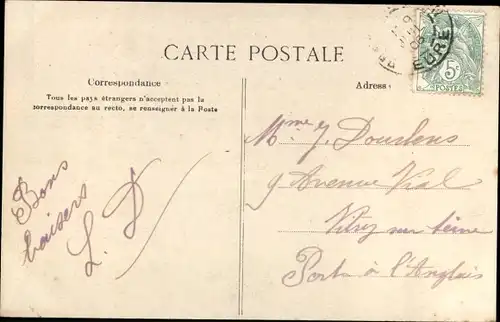 CARTE POSTALE
Correspondance
Tous les pays étrangers n'acceptent pas la
correspondance au recto, se renseigner à la Poste
Adresse
5c
POSTES
Bons
baisers
L. D
Mme J. Dourlens
9 Avenue Vial
Vitry sur Seine
Port à l'Anglais